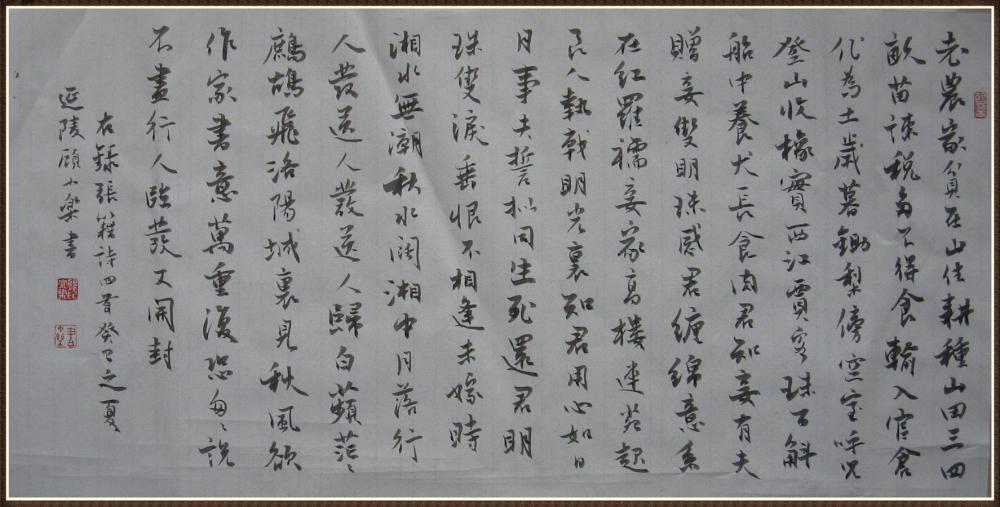 老農家貧在山住耕種山田三四
畝苗疎税多不得食輸入官倉
化為土歲暮鋤犁傍空室呼兒
登山收橡實西江賈客珠百斛
船中養犬長食肉君知妾有夫
贈妾雙明珠感君纏綿意系
在紅羅襦妾家高樓連苑起
良人執戟明光裏知君用心如日
月事夫誓擬同生死還君明
珠雙淚垂恨不相逢未嫁時
湘水無潮秋水闊湘中月落行
人發送人發送人歸白蘋茫〻
鷓鴣飛洛陽城裏見秋風欲
作家書意萬重復恐匆〻說
不盡行人臨發又開封
右錄張籍詩四首癸巳之夏
延陵顧小樂書